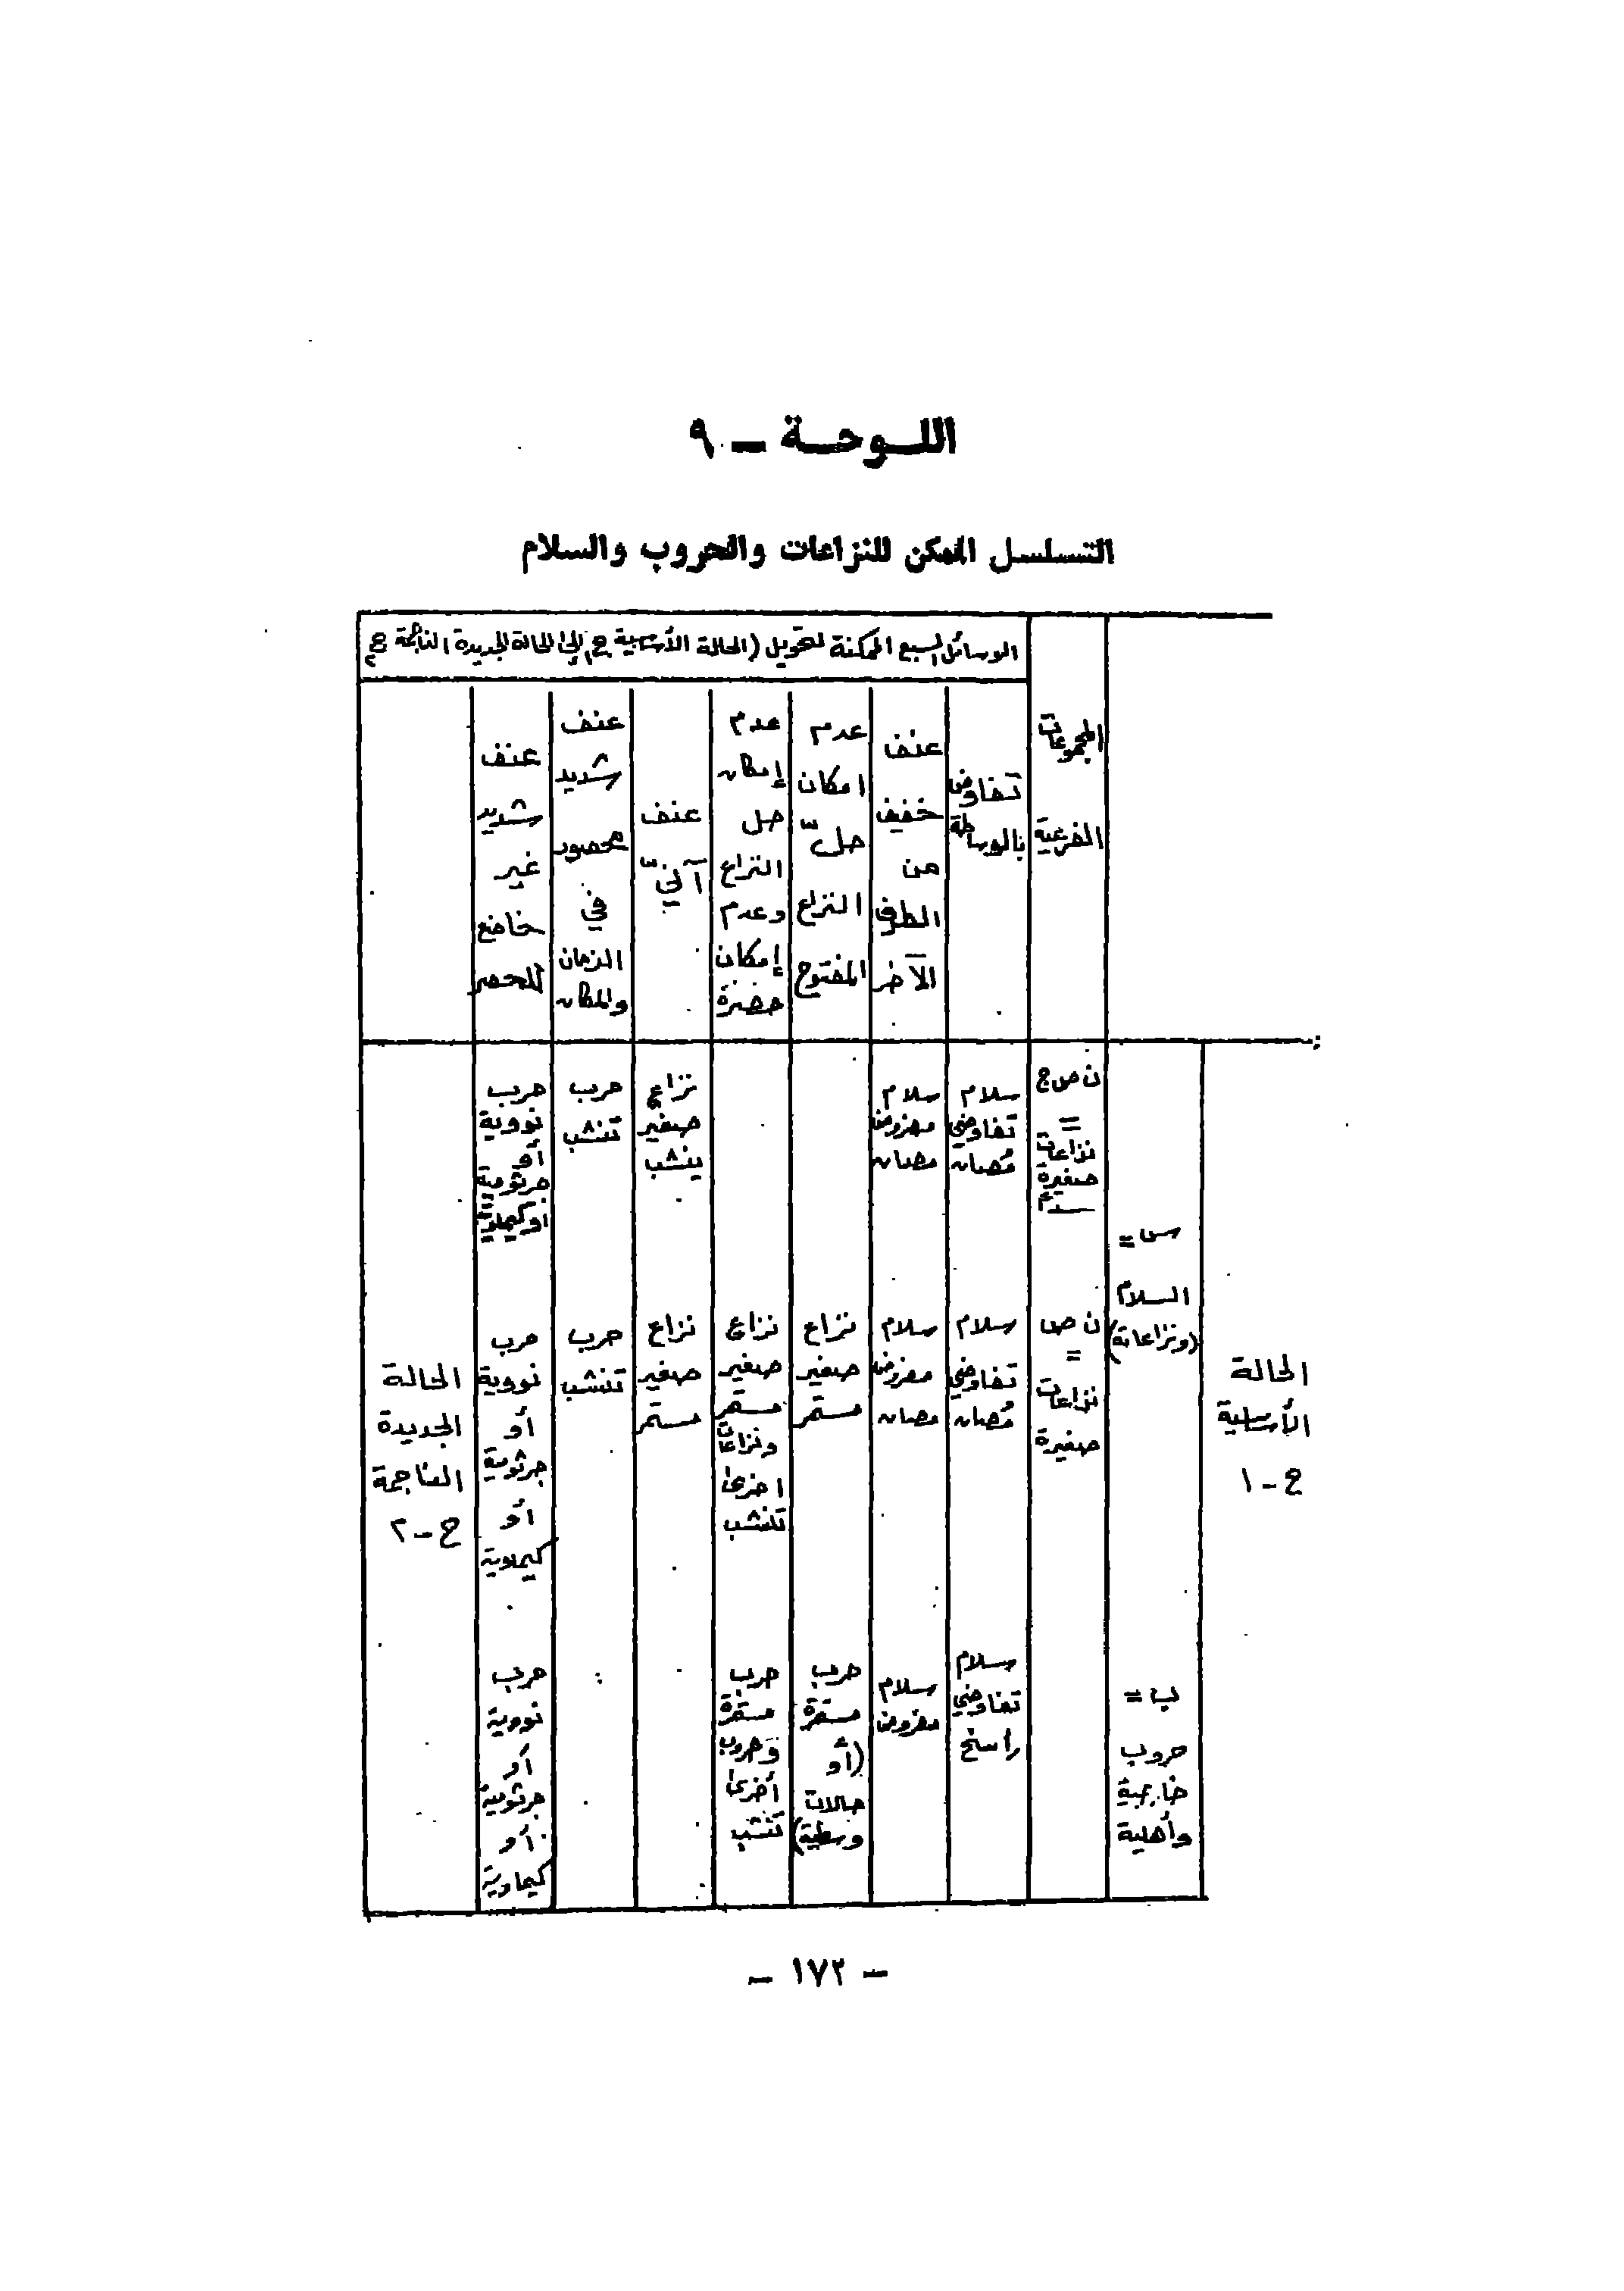 اللوحة - ٩
التسلسل الممكن للنزاعات والحروب والسلام
الوسائل السبع الممكنة لتحويل (الحالة الأساسية ح١ إلى الحالة الجديدة الناجمة ح٢
المجموعات
الفرعية
تفاوض
بالوساطة
عنف
خفيف
من
الطرف
الآخر
عدم
امكان
حلّ
النزاع
المفتوح
عدم
إمكان
حل
النزاع
وعدم
إمكان
عنف
آليّ
عنف
شديد
محصور
في
الزمان
والمكان
عنف
شديد
غير
خاضع
للحصر
الحالة
الأساسية
ح - ١
س =
السلام
(ونزاعاته)
ن ص ج
=
نزاعات
صغيرة
سلام
تفاوضي
مُصان
سلام
مفروض
مصان
نزاع
صغير
ينشب
حرب
تنشب
حرب
نووية
أو
جرثومية
أو كيماوية
ن ص
=
نزاعات
صغيرة
سلام
تفاوضي
مُصان
سلام
مفروض
مصان
نزاع
صغير
مستمر
نزاع
صغير
مستمر
ونزاعات
اخرى
تنشب
نزاع
صغير
مستمر
حرب
تنشب
حرب
نووية
أو
جرثومية
أو
كيماوية
ب =
حروب
خارجية
وأهلية
سلام
تفاوضي
راسخ
سلام
مفروض
حرب
مستمرة
(أو
حالات
وسطية)
حرب
مستمرة
وحروب
أخرى
تنشب
حرب
نووية
أو
جرثومية
أو
كيماوية
الحالة
الجديدة
الناجمة
ح - ٢
- ١٧٢ -